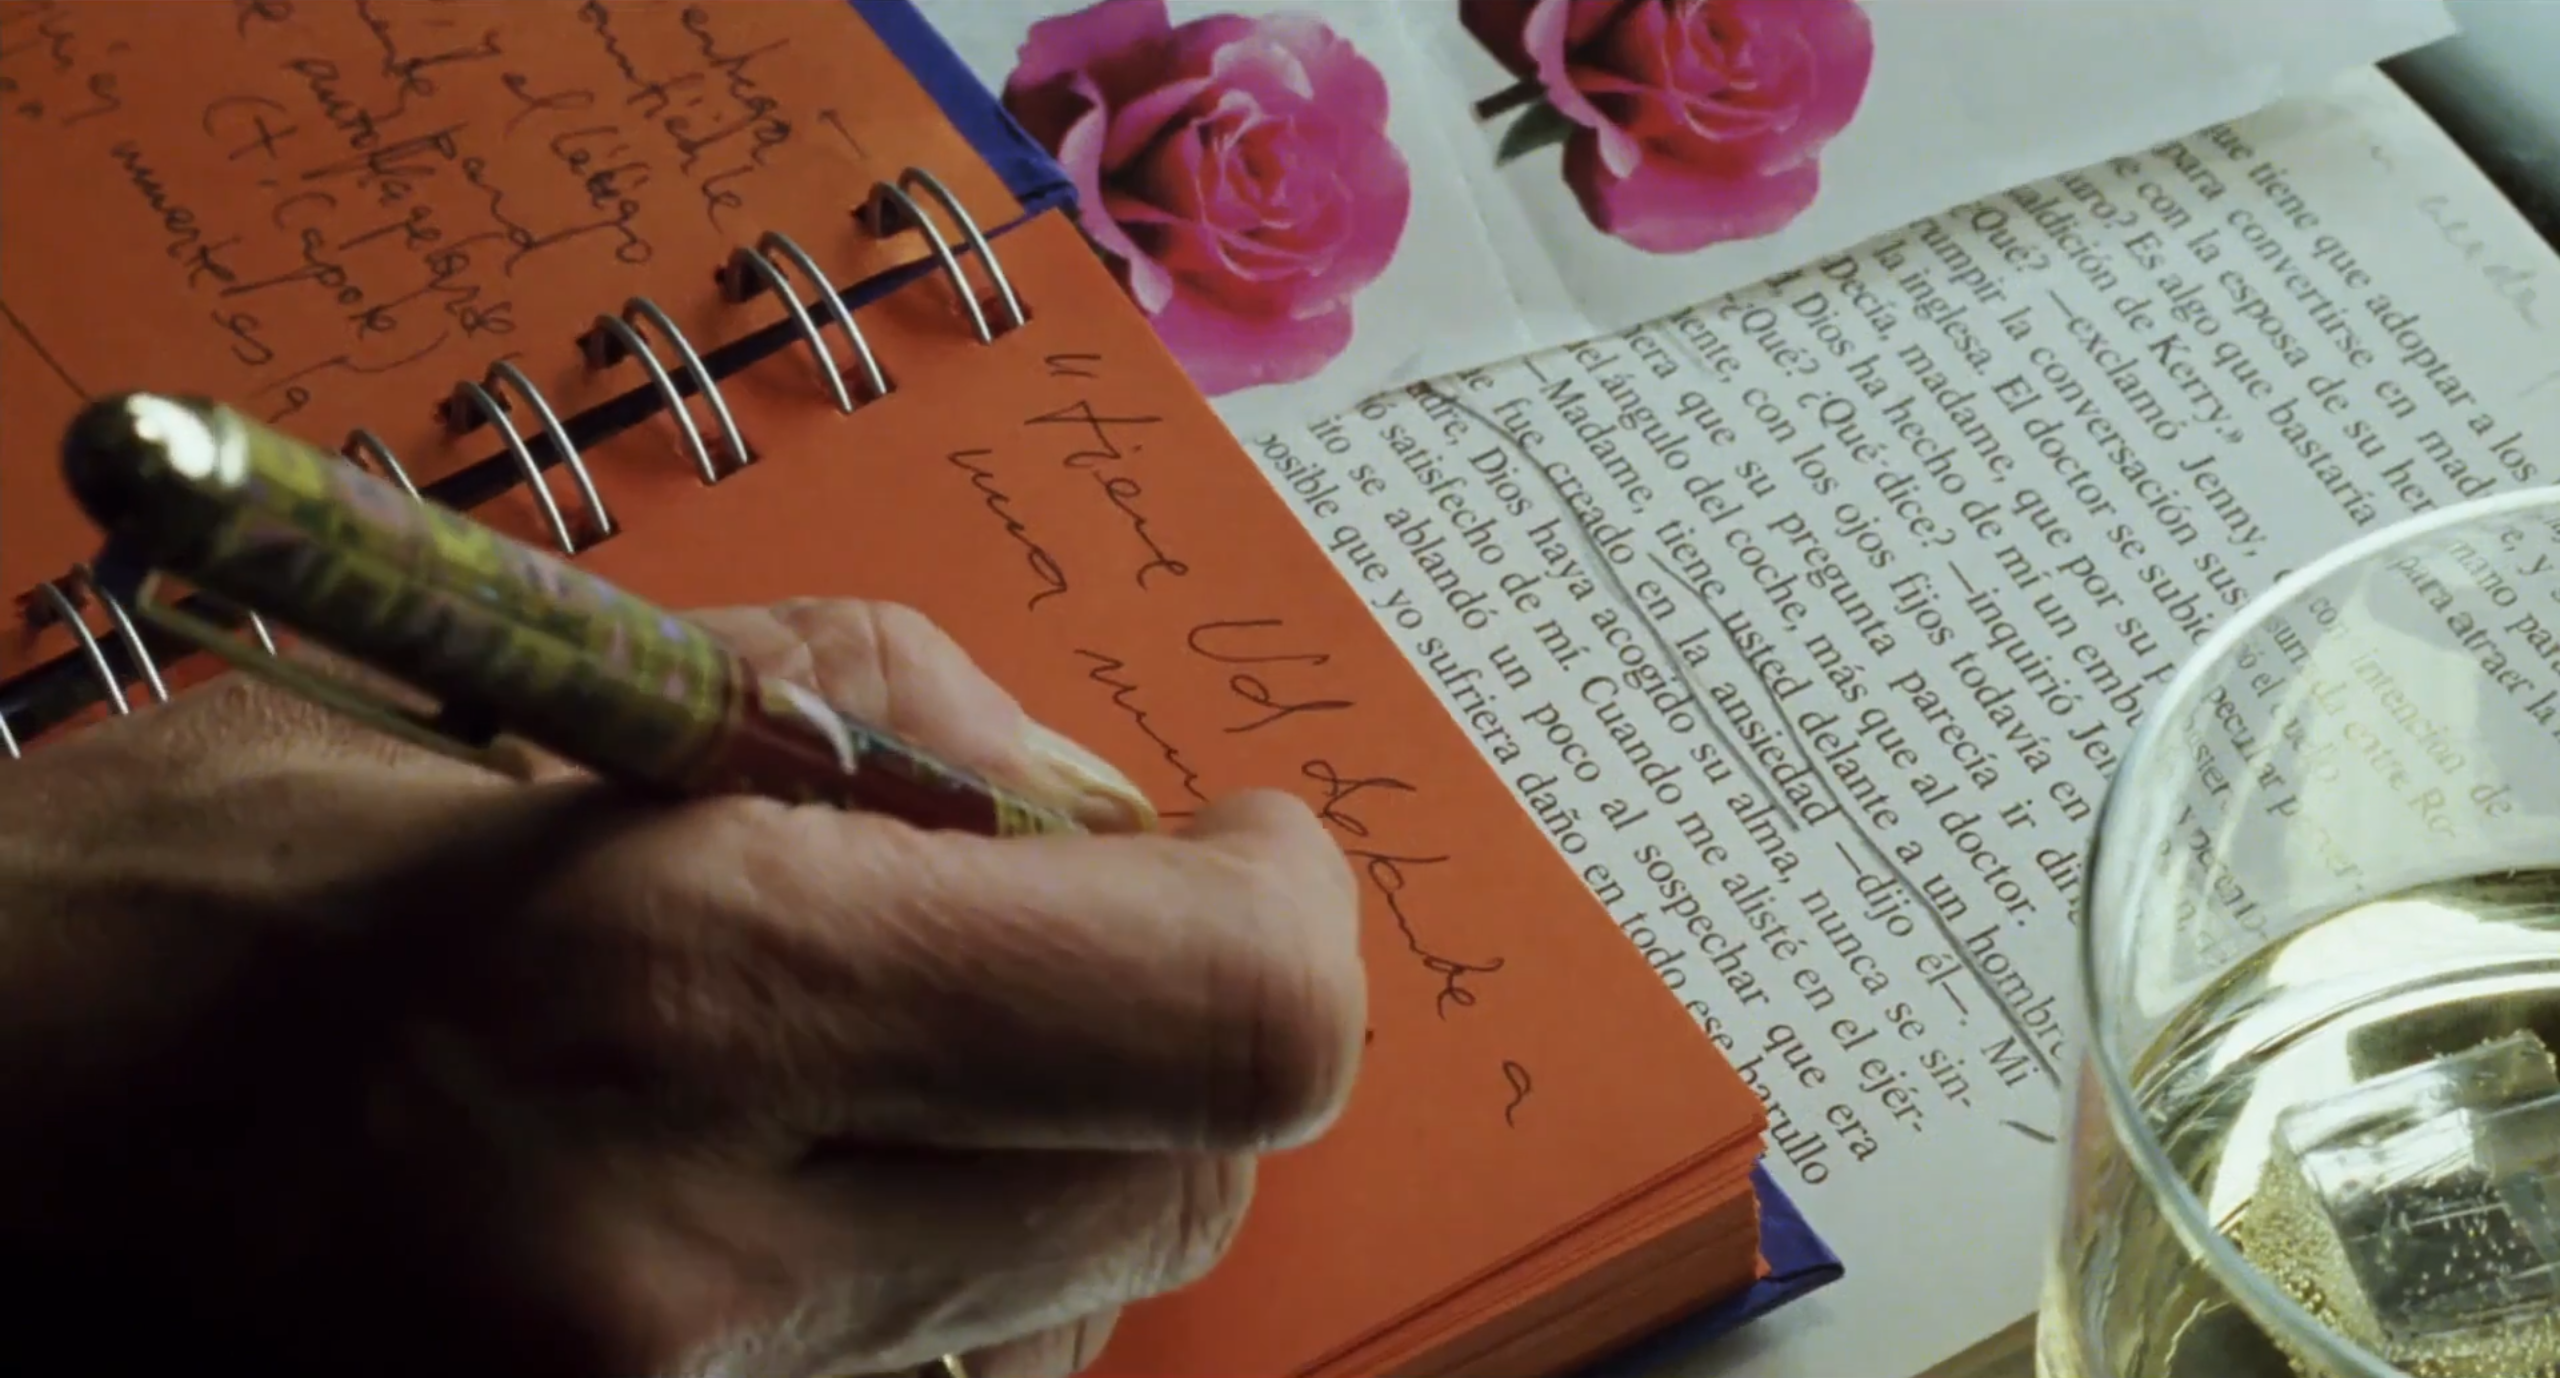 entrega
y el látigo
autoflagelarse
(T. Capote)
"Tiene Ud delante a
una muj
que tiene que adoptar a los
para convertirse en mad
e con la esposa de su her
uro? Es algo que bastaría
aldición de Kerry.»
¿Qué? —exclamó Jenny,
rumpir la conversación sus
la inglesa. El doctor se subió
Decía, madame, que por su p
, Dios ha hecho de mí un embu
¿Qué? ¿Qué dice? —inquirió Jen
ente, con los ojos fijos todavía en
era que su pregunta parecía ir diri
el ángulo del coche, más que al doctor.
—Madame, tiene usted delante a un hombre
e fue creado en la ansiedad —dijo él—. Mi
adre, Dios haya acogido su alma, nunca se sin-
ó satisfecho de mí. Cuando me alisté en el ejér-
ito se ablandó un poco al sospechar que era
posible que yo sufriera daño en todo ese barullo
mano para
para atraer la
con intención de
entre Ro-